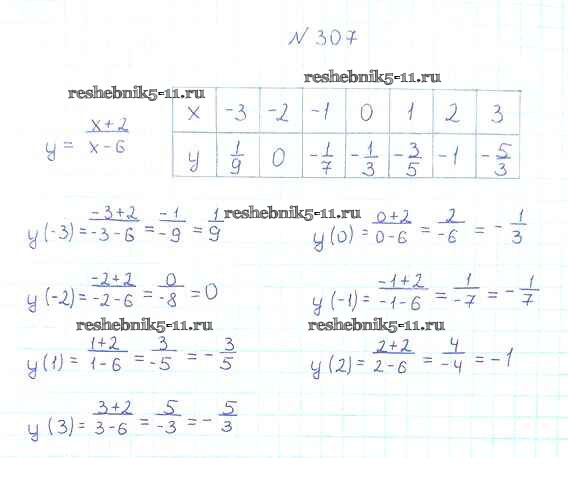 N 307
reshebnik5-11.ru
reshebnik5-11.ru
y = (x+2)/(x-6)
x -3 -2 -1 0 1 2 3
y 1/9 0 -1/7 -1/3 -3/5 -1 -5/3
reshebnik5-11.ru
y(-3) = (-3+2)/(-3-6) = -1/-9 = 1/9
y(0) = (0+2)/(0-6) = 2/-6 = -1/3
y(-2) = (-2+2)/(-2-6) = 0/-8 = 0
y(-1) = (-1+2)/(-1-6) = 1/-7 = -1/7
reshebnik5-11.ru
reshebnik5-11.ru
y(1) = (1+2)/(1-6) = 3/-5 = -3/5
y(2) = (2+2)/(2-6) = 4/-4 = -1
y(3) = (3+2)/(3-6) = 5/-3 = -5/3